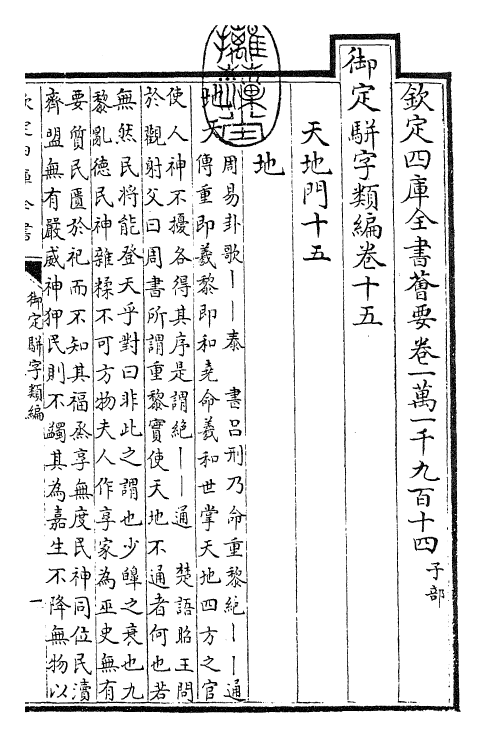 欽定四庫全書薈要卷一萬一千九百十四 子部
御定駢字類編卷十五
天地門十五
地
地天
周易卦歌丨丨泰 書呂刑乃命重黎絶丨丨通
傳重即羲黎即和堯命羲和世掌天地四方之官
使人神不擾各得其序是謂絶丨丨通 楚語昭王問
於觀射父曰周書所謂重黎實使天地不通者何也若
無然民將能登天乎對曰非此之謂也少皥之衰也九
黎亂德民神雜糅不可方物夫人作享家為巫史無有
要質民匱於祀而不知其福烝享無度民神同位民瀆
齊盟無有嚴威神狎民則不蠲其為嘉生不降無物以
欽定四庫全書
御定駢字類編
一